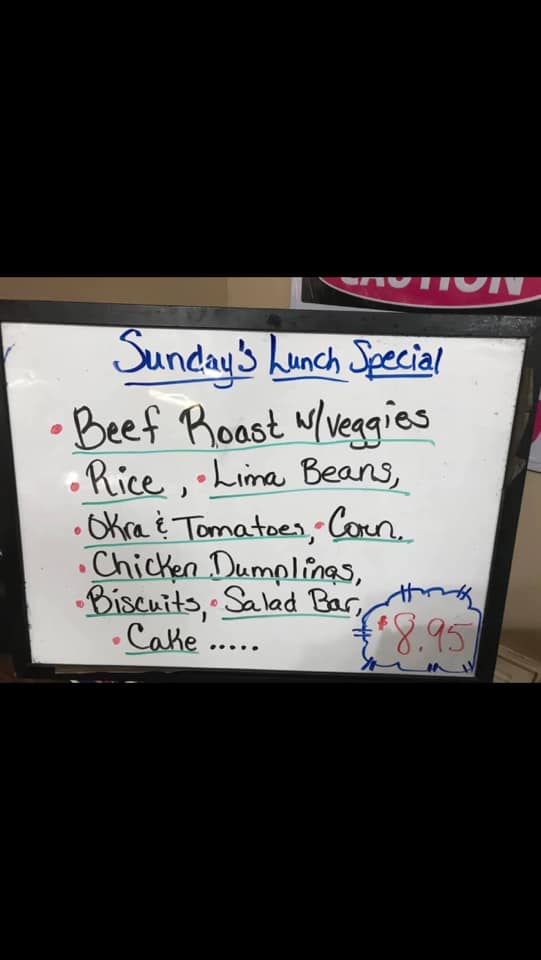 CAUTION
Sunday's Lunch Special
• Beef Roast w/veggies
• Rice, • Lima Beans,
• Okra & Tomatoes, • Corn.
• Chicken Dumplings,
• Biscuits, • Salad Bar,
• Cake .....
$8.95